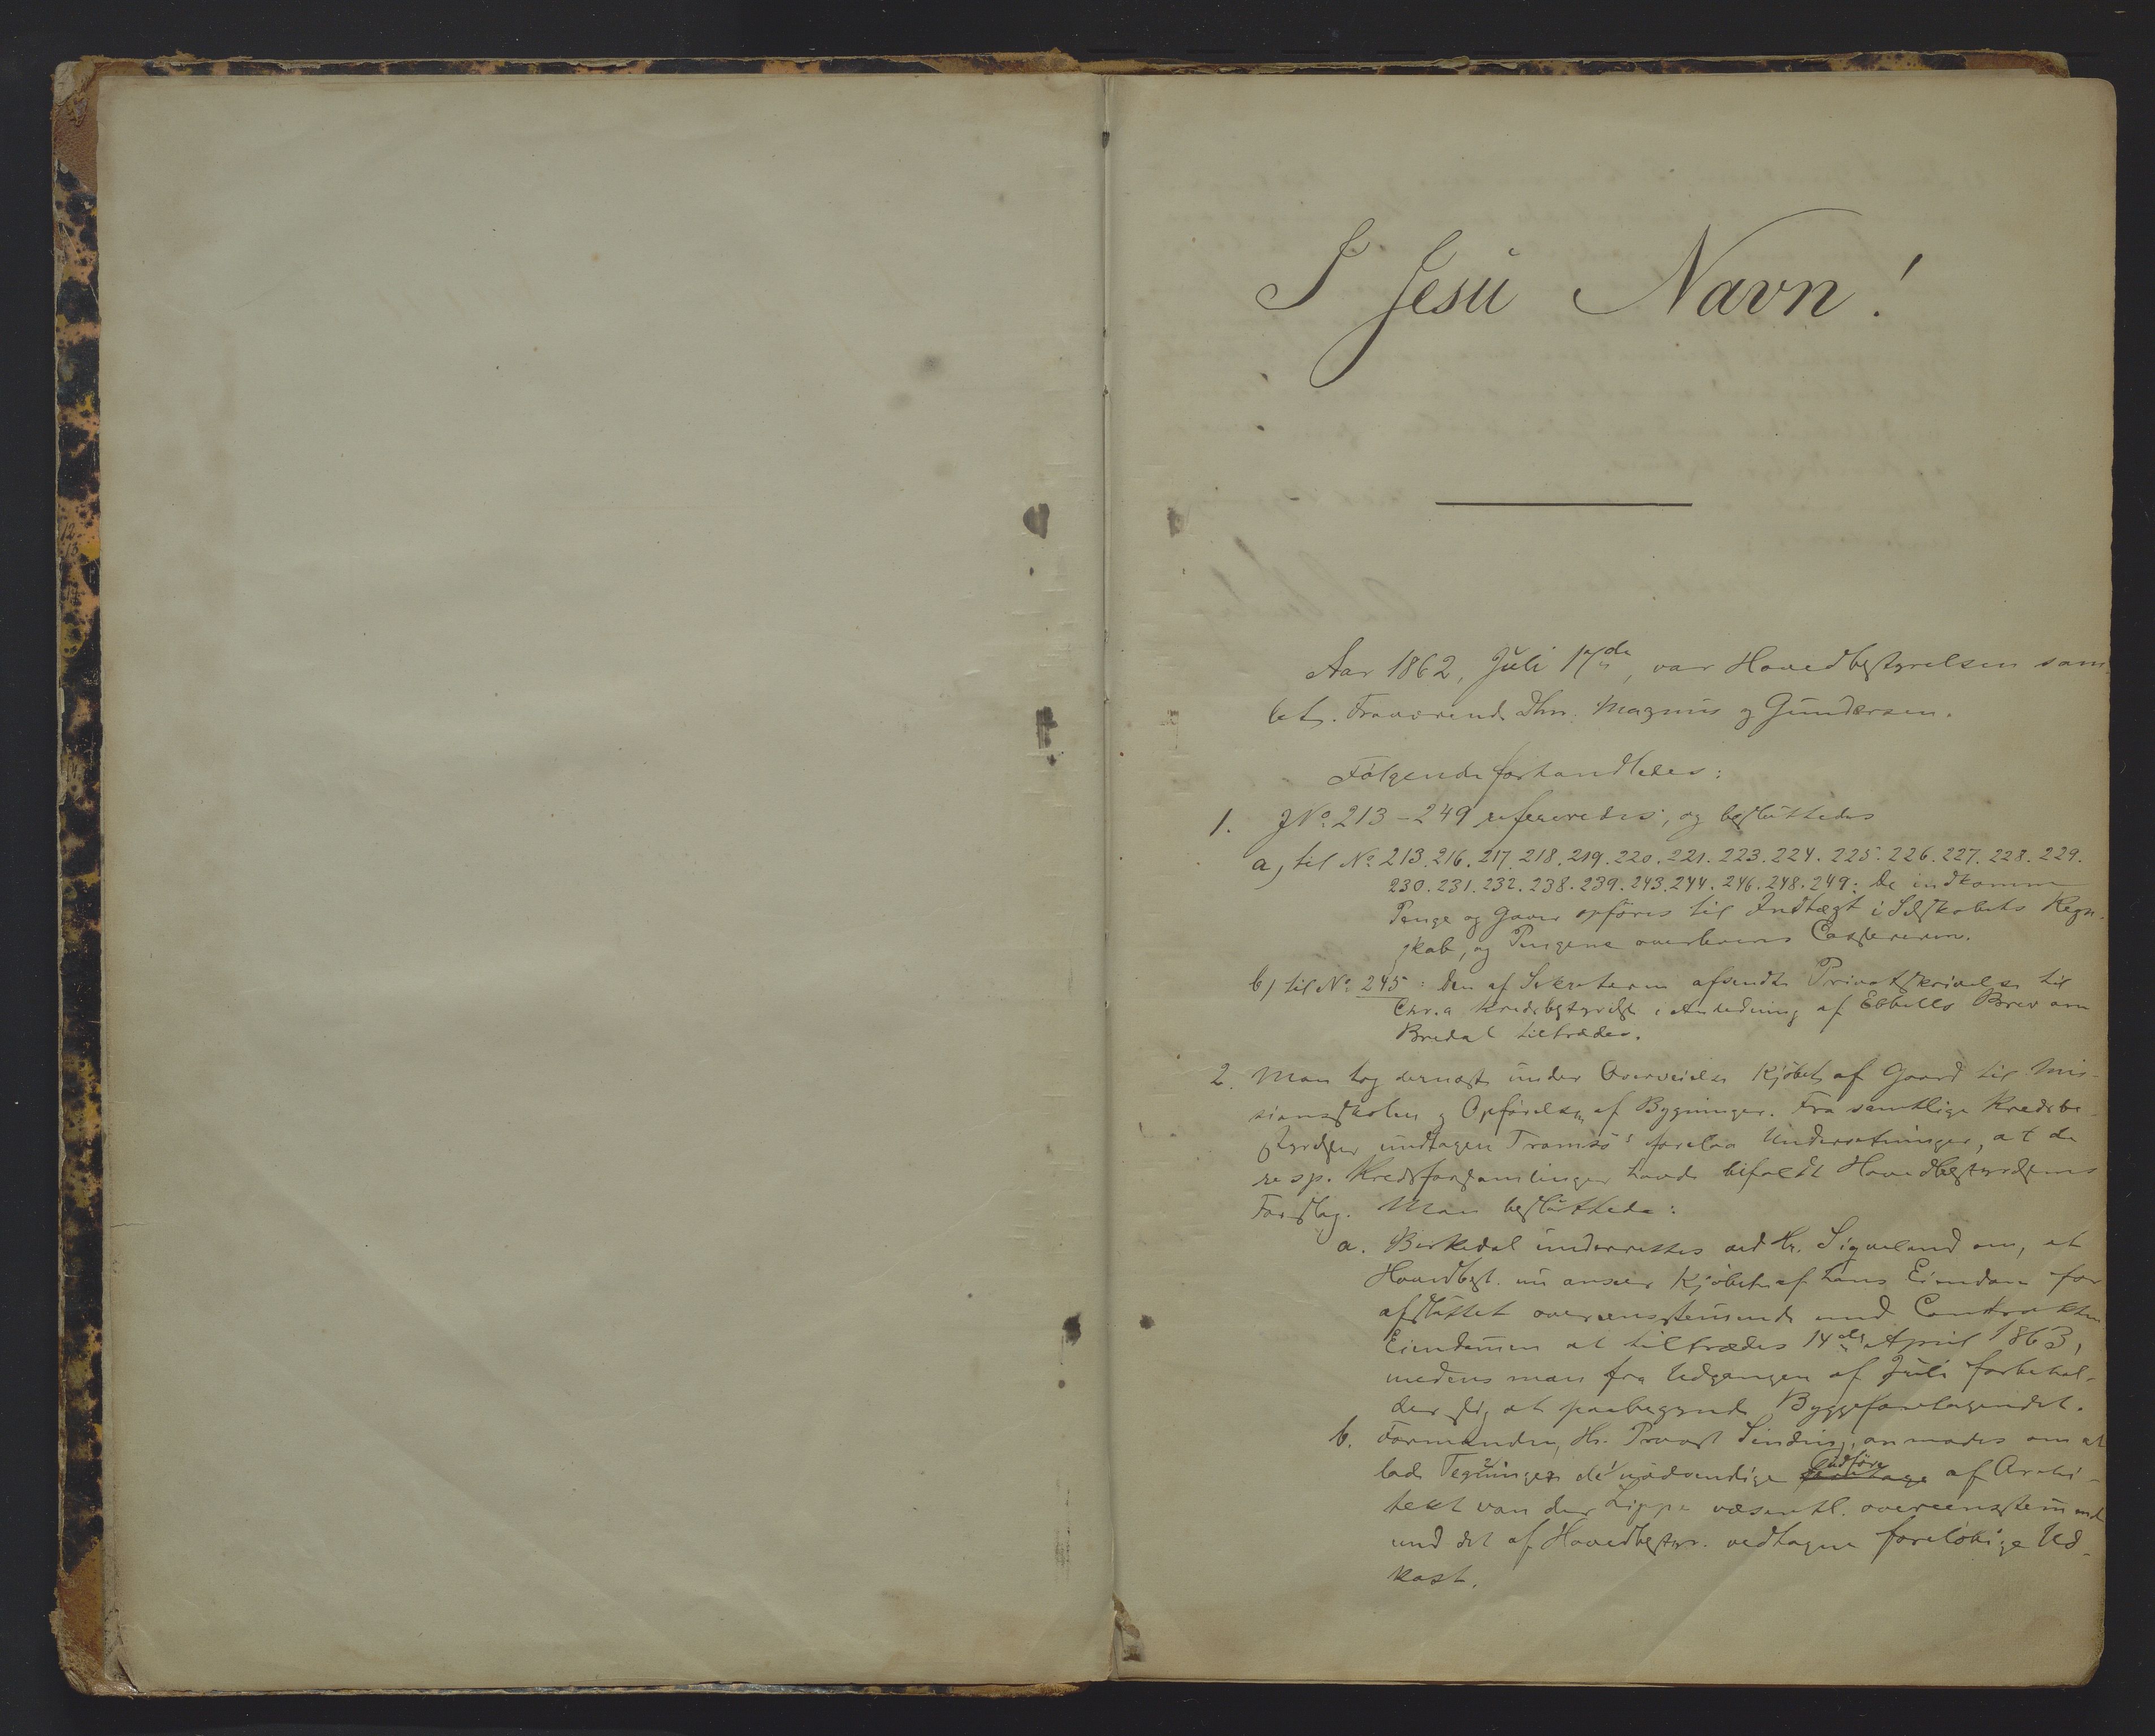 I Jesu Navn!
Aar 1862, Juli 17de, var Hovedbestyrelsen sam
let. Fraværende Dhrr. Magnus og Gundersen.
Følgende forhandledes:
1. JNo. 213-249 refereredes, og besluttedes
a, til No. 213. 216. 217. 218. 219. 220. 221. 223. 224. 225. 226. 227. 228. 229.
230. 231. 232. 238. 239. 243. 244. 246. 248. 249: De indkomne
Penge og Gaver opføres til Indtægt i Selskabets Regn-
skab, og Pengene overleveres Cassereren.
b) til No. 245: Den af Sekretæren afsendte Privatskrivelse til
Chr.a Kredsbestyrelse i Anledning af Ebbells Brev om
Bredal tiltrædes.
2. Man tog dernæst under Overveielse Kjøbet af Gaard til Mis-
sionsskolen og Opførelsen af Bygninger. Fra samtlige Kredsbe-
styrelser undtagen Tromsø's forelaa Underretninger, at de
resp. Kredsforsamlinger havde bifaldt Hovedbestyrelsens
Forslag. Man besluttede:
a. Birkedal underrettes ved Hr. Sigveland om, at
Hovedbest. nu anseer Kjøbet af hans Eiendom for
afsluttet overensstemmende med Contrakten
Eiendommen at tiltrædes 14de April 1863,
medens man fra Udgangen af Juli forbehol-
der sig at paabegynde Byggeforetagendet.
b. Formanden, Hr. Provst Sinding, anmodes om at
lade Tegninger de nødvendige udføre af Archi-
tekt van der Lippe væsentl. overeensstemmende
med det af Hovedbestyr. vedtagne foreløbige Ud-
kast.